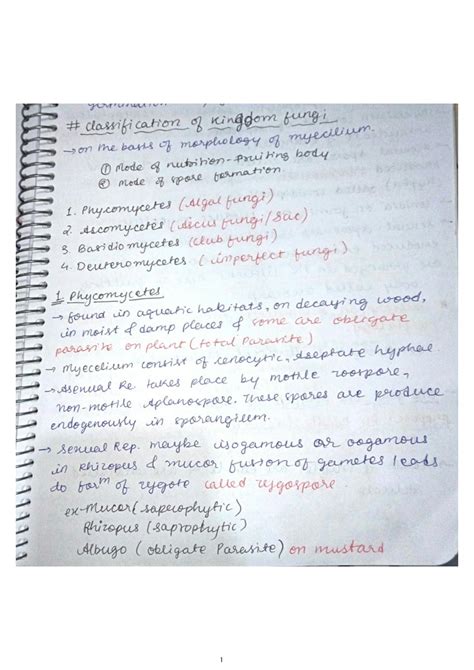 germination
# Classification of Kingdom fungi
→ on the basis of morphology of mycilium.
① Mode of nutrition - fruiting body
② Mode of spore formation
1. Phycomycetes (Algal fungi)
2. Ascomycetes (Ascus fungi/Sac)
3 Basidiomycetes (club fungi)
4. Deuteromycetes (imperfect fungi)
1. Phycomycetes
→ found in aquatic habitats, on decaying wood,
in moist & damp places & some are obligate
parasite on plant (total Parasite)
→ Mycelium consist of cenocytic, Aseptate hyphae.
→ Asexual Re takes place by motile zoospore,
non-motile Aplanospore. These spores are produce
endogenously in sporangium.
→ Sexual Rep. maybe isogamous or oogamous
in Rhizopus & mucor fusion of gametes leads
do form of zygote called zygospore.
ex- Mucor (saprophytic)
Rhizopus (saprophytic)
Albugo (obligate Parasite) on mustard
1